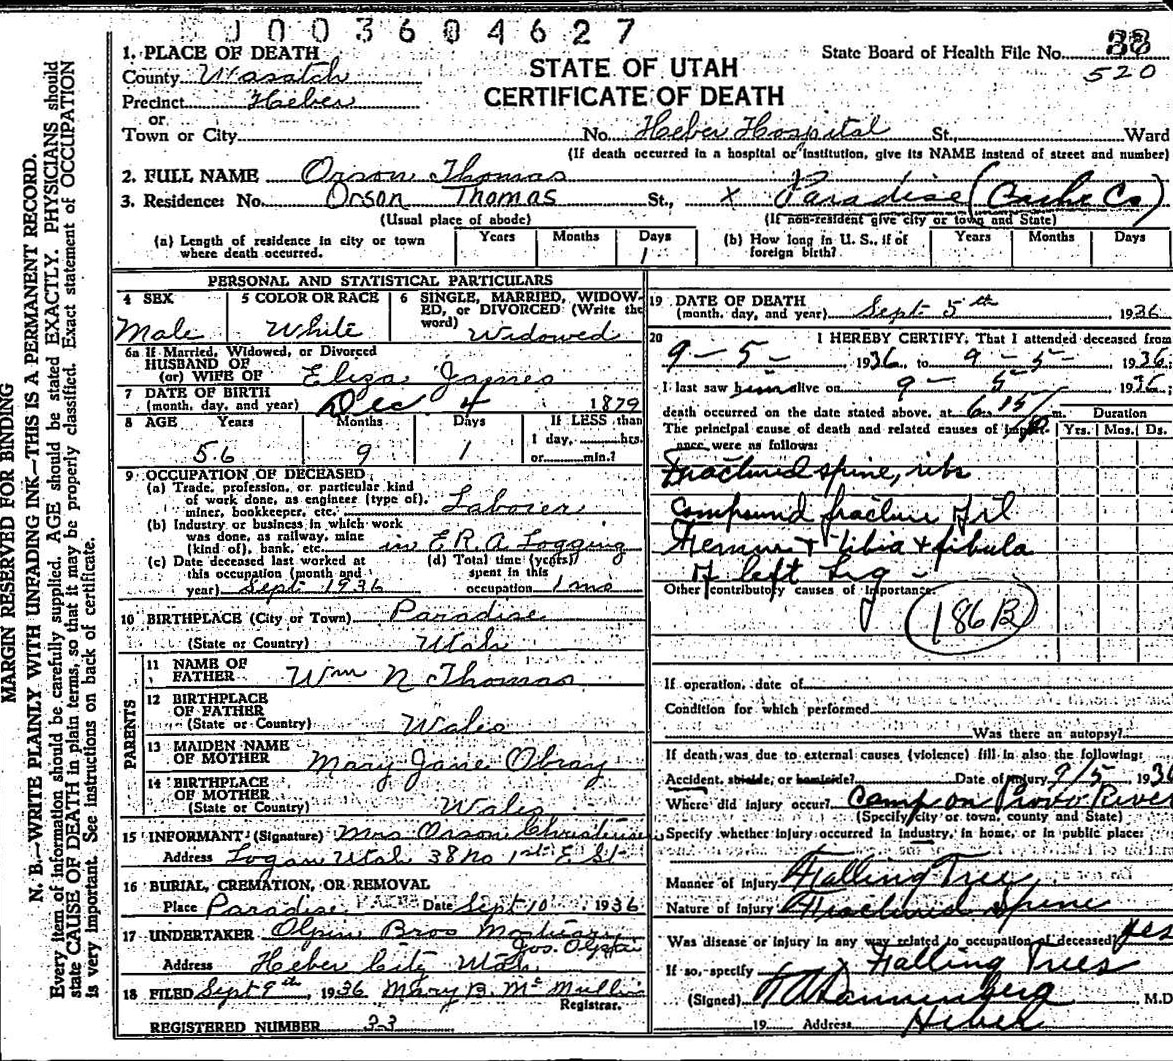 J003604627
1. PLACE OF DEATH
State Board of Health File No. 33
County Wasatch
STATE OF UTAH
520
Precinct Heber
CERTIFICATE OF DEATH
or
Town or City No. Heber Hospital St., Ward
(If death occurred in a hospital or institution, give its NAME instead of street and number)
2. FULL NAME Orson Thomas
3. Residence: No. Orson Thomas St., X Paradise (Cache Co)
(Usual place of abode) (If non-resident give city or town and State)
(a) Length of residence in city or town where death occurred. Years Months Days 1
(b) How long in U. S., if of foreign birth? Years Months Days
PERSONAL AND STATISTICAL PARTICULARS
4 SEX Male
5 COLOR OR RACE White
6 SINGLE, MARRIED, WIDOWED, or DIVORCED (Write the word) Widowed
6a If Married, Widowed, or Divorced
HUSBAND OF
(or) WIFE OF Eliza James
7 DATE OF BIRTH
(month, day, and year) Dec 4 1879
8 AGE Years Months Days If LESS than
56 9 1 1 day, hrs.
or min.?
9 OCCUPATION OF DECEASED
(a) Trade, profession, or particular kind
of work done, as engineer (type of),
miner, bookkeeper, etc. Laborer
(b) Industry or business in which work
was done, as railway, mine
(kind of), bank, etc. in E.R.A Logging
(c) Date deceased last worked at
this occupation (month and
year) Sept 1936
(d) Total time (years)
spent in this
occupation 1 mo
10 BIRTHPLACE (City or Town) Paradise
(State or Country) Utah
PARENTS
11 NAME OF
FATHER Wm N Thomas
12 BIRTHPLACE
OF FATHER
(State or Country) Wales
13 MAIDEN NAME
OF MOTHER Mary Jane Obray
14 BIRTHPLACE
OF MOTHER
(State or Country) Wales
15 INFORMANT (Signature) Mrs Orson Christensen
Address Logan Utah 38 No 1st E St
16 BURIAL, CREMATION, OR REMOVAL
Place Paradise Date Sept 10 1936
17 UNDERTAKER Olpin Bros Mortuary
Jos. Olpin
Address Heber City Utah
18 FILED Sept 9th, 1936 Mary B. McMullin
Registrar.
REGISTERED NUMBER 33
19 DATE OF DEATH
(month, day, and year) Sept 5th 1936
20 I HEREBY CERTIFY, That I attended deceased from
9-5- 1936, to 9-5- 1936;
I last saw him alive on 9-5- 1936
death occurred on the date stated above, at 6:15 P m. Duration
The principal cause of death and related causes of importance were as follows: Yrs. Mos. Ds.
Fractured spine, ribs
Compound fracture of rt
Femur + tibia + fibula
of left leg -
Other contributory causes of importance:
186B
If operation, date of
Condition for which performed
Was there an autopsy?
If death was due to external causes (violence) fill in also the following:
Accident, suicide, or homicide? Date of injury 9/5 1936
Where did injury occur? Camp on Provo River
(Specify city or town, county and State)
Specify whether injury occurred in industry, in home, or in public place:
Manner of injury Falling Tree
Nature of Injury Fractured Spine
Was disease or injury in any way related to occupation of deceased? yes
If so, specify Falling Trees
(Signed) Dannenberg, M.D.
19 Address Heber
MARGIN RESERVED FOR BINDING
N. B.—WRITE PLAINLY WITH UNFADING INK—THIS IS A PERMANENT RECORD.
Every item of information should be carefully supplied. AGE should be stated EXACTLY. PHYSICIANS should
state CAUSE OF DEATH in plain terms, so that it may be properly classified. Exact statement of OCCUPATION
is very important. See instructions on back of certificate.